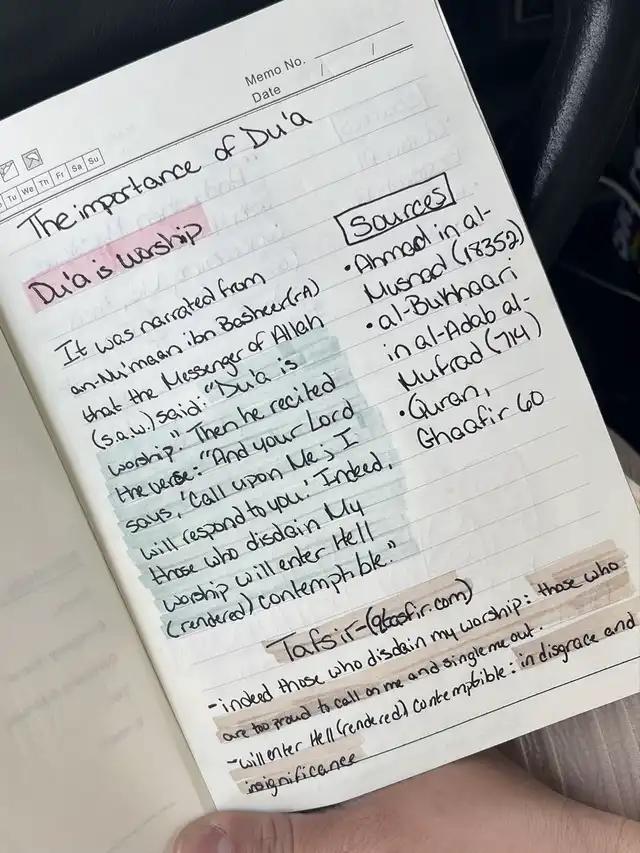 Memo No.
Date / /
Tu We Th Fr Sa Su
The importance of Du'a
Du'a is worship
It was narrated from
an-Nu'maan ibn Basheer(rA)
that the Messenger of Allah
(s.a.w.) said: "Du'a is
worship." Then he recited
the verse: "And your Lord
says, 'Call upon Me; I
will respond to you.' Indeed,
those who disdain My
worship will enter Hell
(rendered) contemptible."
Sources
•Ahmad in al-
Musnad (18352)
•al-Bukhaari
in al-Adab al-
Mufrad (714)
•Quran,
Ghaafir 60
Tafsir-(qtafsir.com)
-indeed those who disdain my worship: those who
are too proud to call on me and single me out.
-will enter Hell (rendered) contemptible: in disgrace and
insignificance